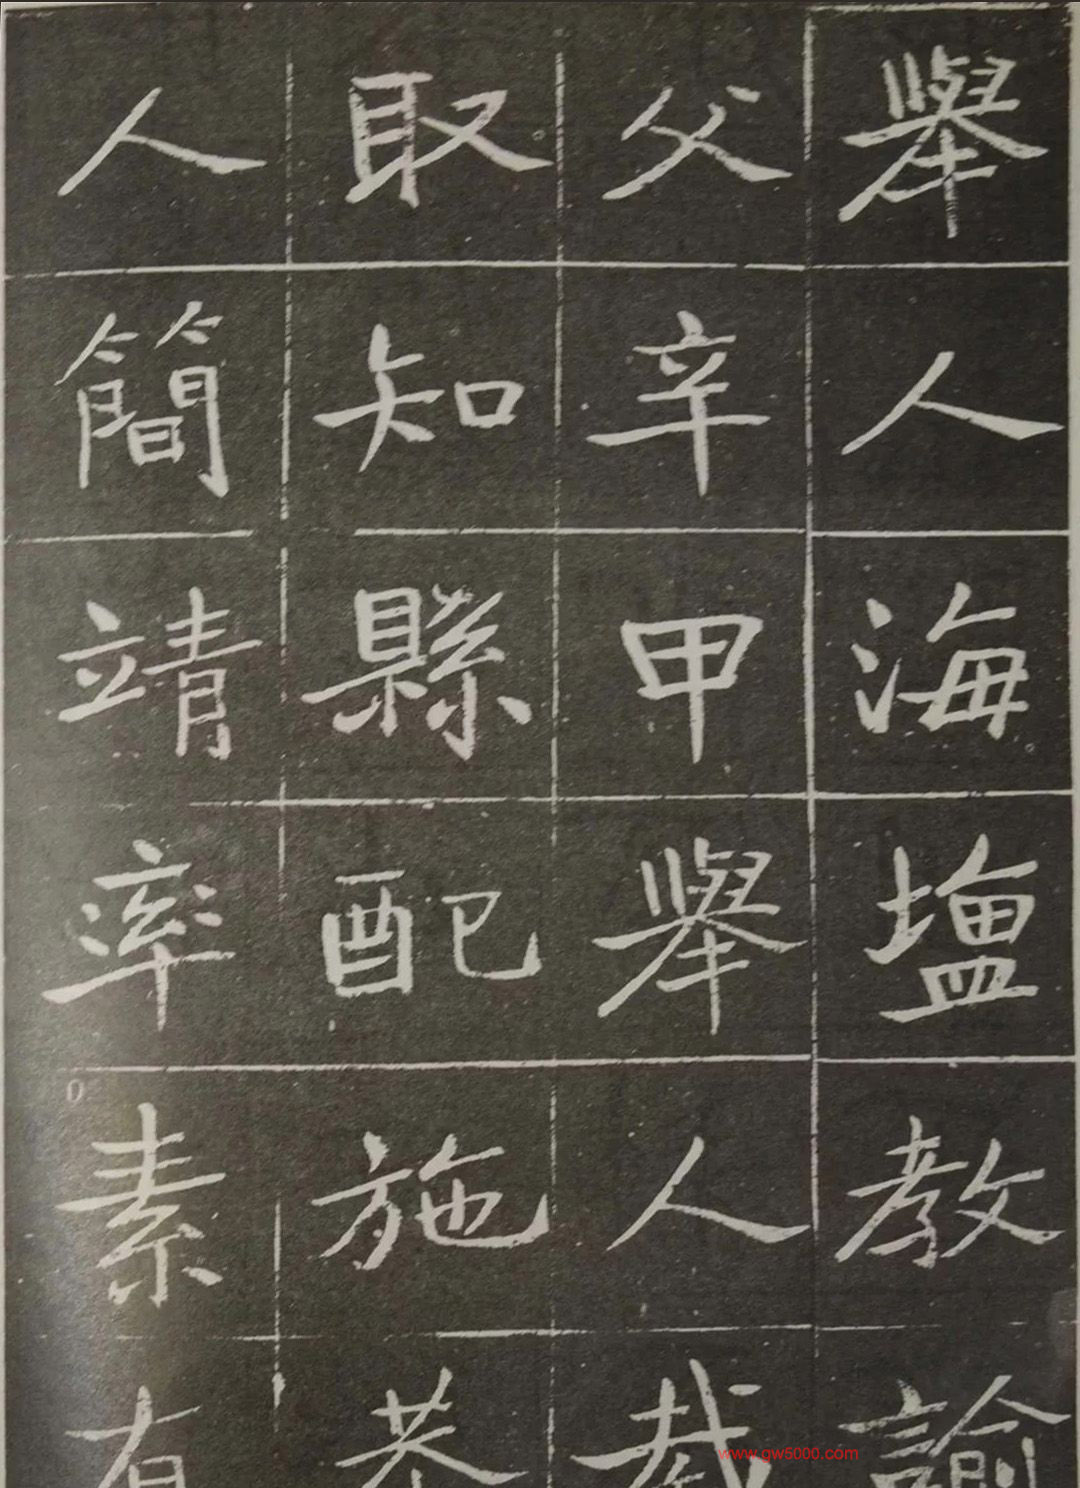 舉人海塩教諭
父辛甲舉人截
取知縣配施恭
人簡靖率素有
www.gw5000.com